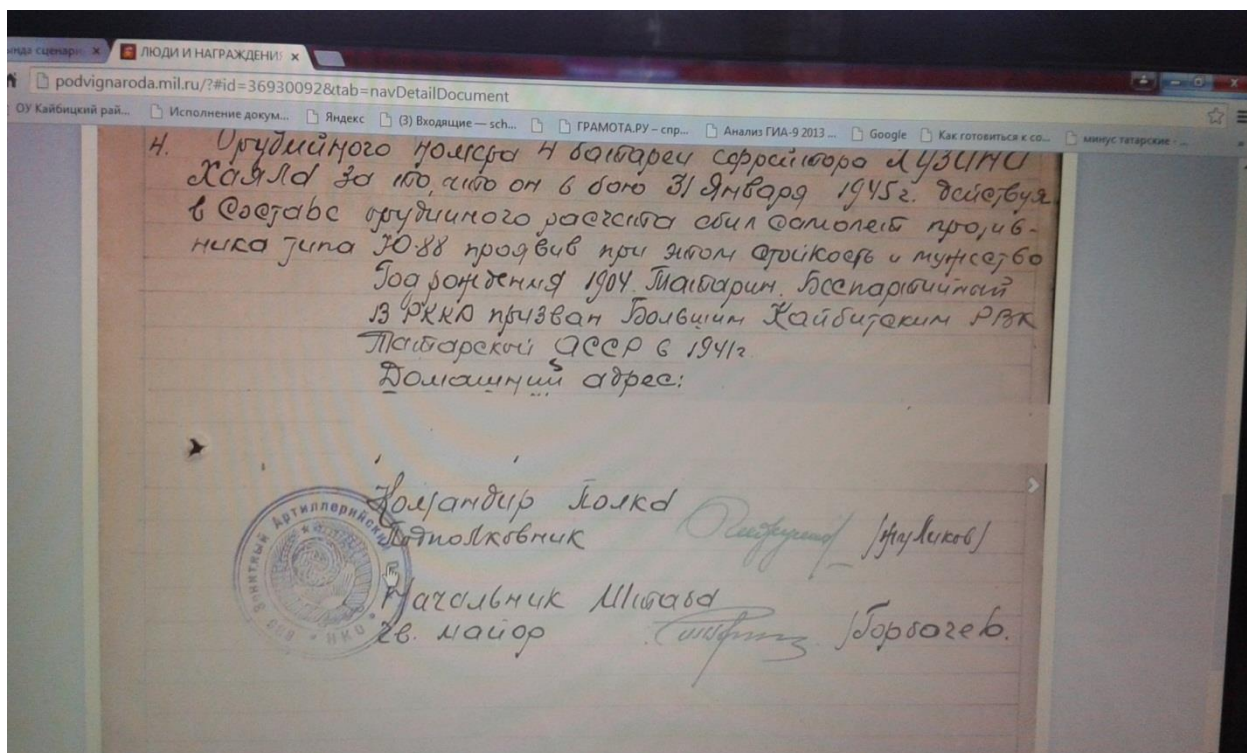 ЛЮДИ И НАГРАЖДЕНИЯ
podvignaroda.mil.ru/?#id=36930092&tab=navDetailDocument
ОУ Кайбицкий рай... Исполнение докум... Яндекс (3) Входящие — sch... ГРАМОТА.РУ – спр... Анализ ГИА-9 2013 ... Google Как готовиться к со... минус татарские - ...
4. Орудийного номера 4 батареи ефрейтора
Хаяла за то, что он в бою 31 Января 1945г. действуя
в составе орудийного расчета сбил самолет против-
ника типа Ю-88 проявив при этом стойкость и мужество
Год рождения 1904. Татарин. Беспартийный
В РККА призван Большим Кайбитским РВК
Татарской АССР в 1941г.
Домашний адрес:
Командир Полка
Подполковник /Жуликов/
Начальник Штаба
гв. майор /Горбачев.
Зенитный Артиллерийский
НКО